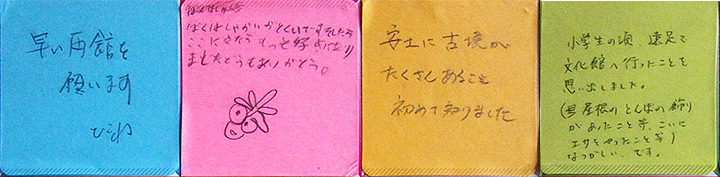 早い再館を
願います
ひこね
ぼくはしゃかいがとくいです。そしたら
ここにきたらもっと好きになり
ましたどうもありがとう。
安土に古墳が
たくさんあることを
初めて知りました
小学生の頃、遠足で
文化館へ行ったことを
思い出しました。
屋根のとんぼの飾り
があったこと等、こいに
エサをやったこと等)
なつかしいです。